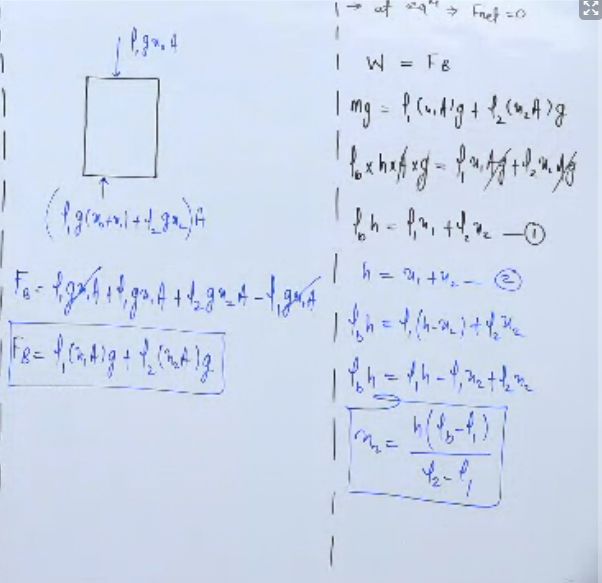 ρ₁gx₀A
(ρ₁g(x₀+x₁) + ρ₂gx₂)A
F_B = ρ₁gx₀A + ρ₁gx₁A + ρ₂gx₂A − ρ₁gx₀A
F_B = ρ₁(x₁A)g + ρ₂(x₂A)g
→ at eqⁿ → Fnet = 0
W = F_B
mg = ρ₁(x₁A)g + ρ₂(x₂A)g
ρ_b × h × A × g = ρ₁x₁Ag + ρ₂x₂Ag
ρ_b h = ρ₁x₁ + ρ₂x₂ — ①
h = x₁ + x₂ — ②
ρ_b h = ρ₁(h−x₂) + ρ₂x₂
ρ_b h = ρ₁h − ρ₁x₂ + ρ₂x₂
x₂ = h(ρ_b − ρ₁)
ρ₂ − ρ₁